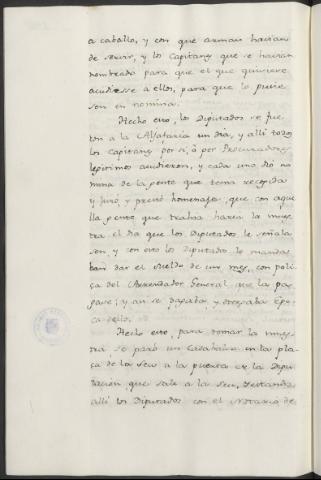 a caballo, y con que armas havian
de servir, y los Capitanes que se havian
nombrado para que el que quisiere
acudiesse a ellos, para que lo pusie
sen en nomina.
Hecho esto, los Diputados se fue
ron a la Aljafaria un dia, y alli todos
los capitanes por sí, ò por Procuradores
legitimos acudieron, y cada uno diò no
mina de la gente que tenia recogida
y juró, y prestó homenage, que con aque
lla gente que trahia haria la mues
tra el dia que los Diputados le señala
sen, y con esto los Diputados le manda
ban dar el sueldo de un mes, con poli
ça del Arrendador General que la pa
gase; y asi se pagaba, y otorgaba Apo
ca dello.
Hecho esto, para tomar la mues
tra, se paró un Cadahalso en la pla
ça de la Seu a la puerta de la Dipu
tacion, que sale a la Seu, y estando
alli los Diputados con el Notario de